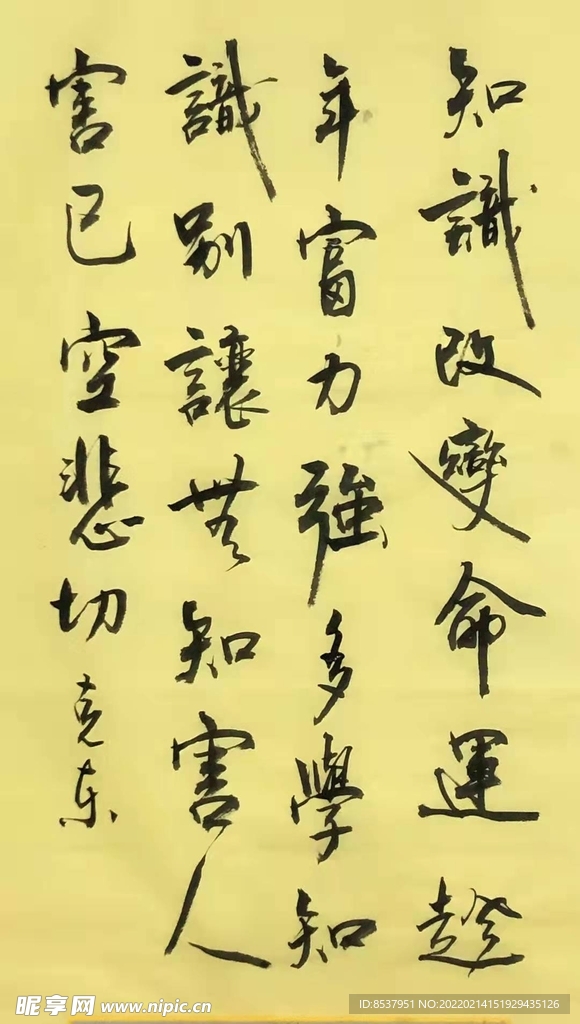 知識改變命運趁
年富力強多學知
識别讓無知害人
害己空悲切
克东
昵享网 www.nipic.cn
ID:8537951 NO:20220214151929435126